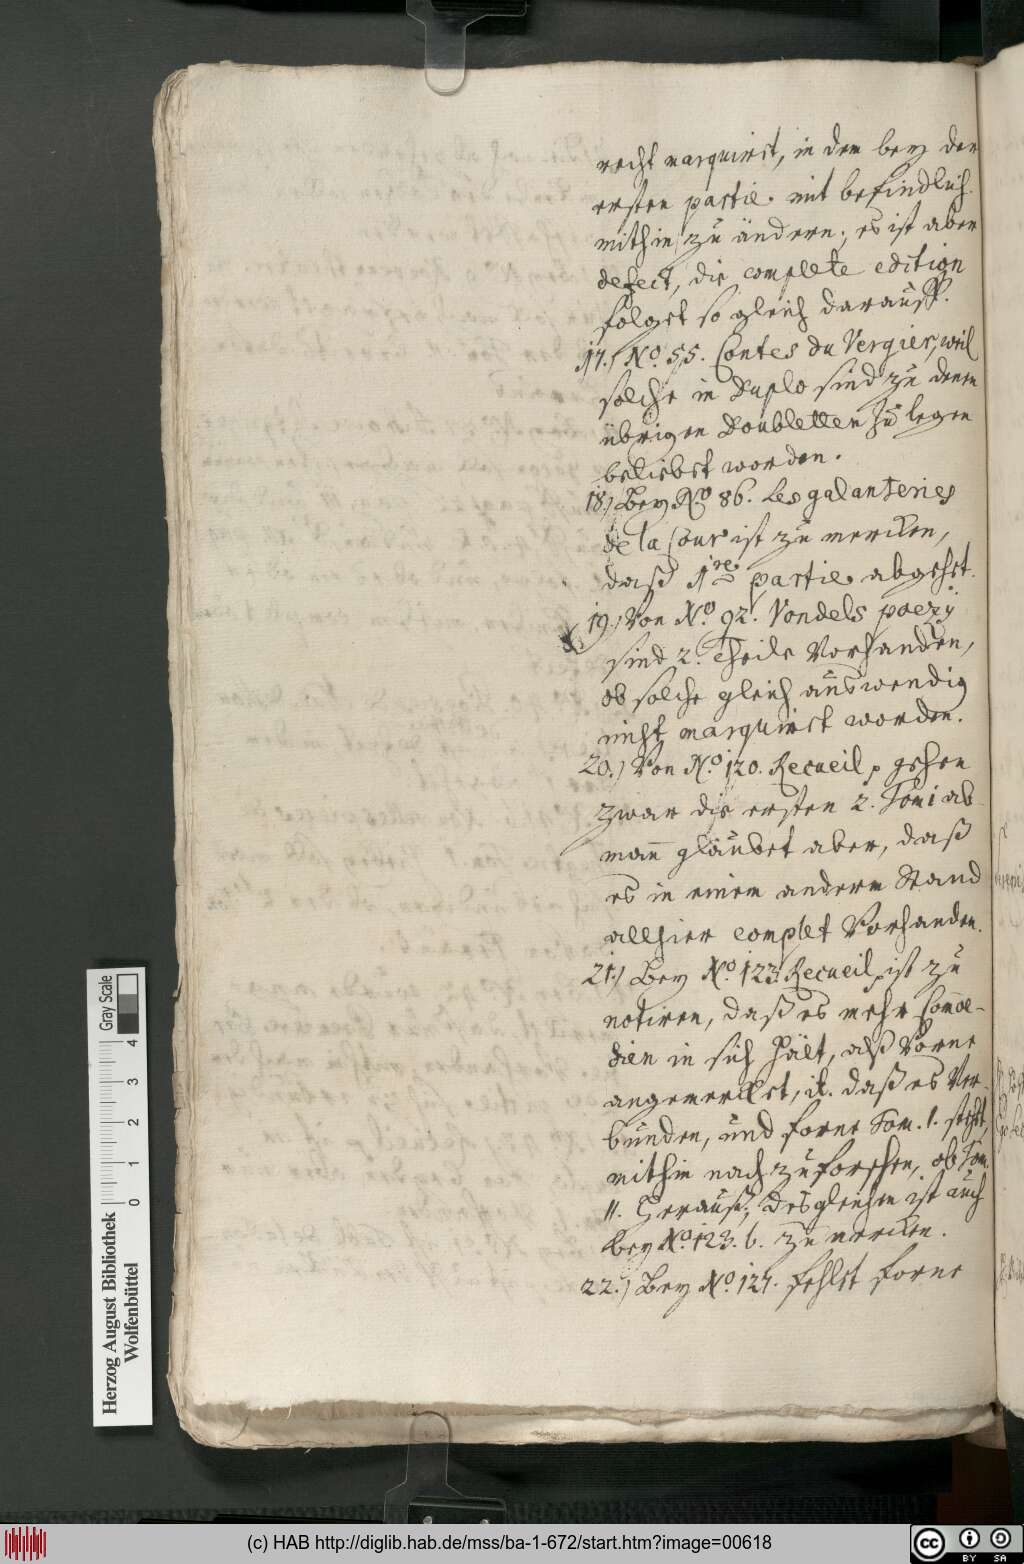 recht marquiret, in dem bey der
ersten partie. mit befindlich.
mithin zu ändern; es ist aber
defect, die complete edition
folget so gleich darauff.
17.) No. 55. Contes du Vergier, weil
solche in Duplo sind zu denen
übrigen Doubletten zu legen
beliebet worden.
18.) Bey No. 86. Les galanteries
de la Cour ist zu mercken,
daß 1re partie. abgehet.
19.) Von No. 92. Vondels poezÿ
sind 2. Theile Vorhanden,
ob solche gleich auswendig
nicht marquiret worden.
20.) Von No. 120. Recueil, gehen
zwar die ersten 2. Tomi ab
man̄ gläubet aber, daß
es in einem andern Stand
allhier complet Vorhanden.
21.) Bey No. 123. Recueil, ist zu
notiren, daß es mehr Com̄oe-
dien in sich hält, alß Vorne
angemercket, it. daß es Ver-
bunden, und forne Tom. 1. stehet,
mithin nach zu forschen, ob Tom.
11. Herauß; desgleichen ist auch
bey No. 123. b. zu mercken.
22.) Bey No. 127. fehlet forne
Gray Scale
0 1 2 3 4
Herzog August Bibliothek
Wolfenbüttel
(c) HAB http://diglib.hab.de/mss/ba-1-672/start.htm?image=00618
cc BY SA